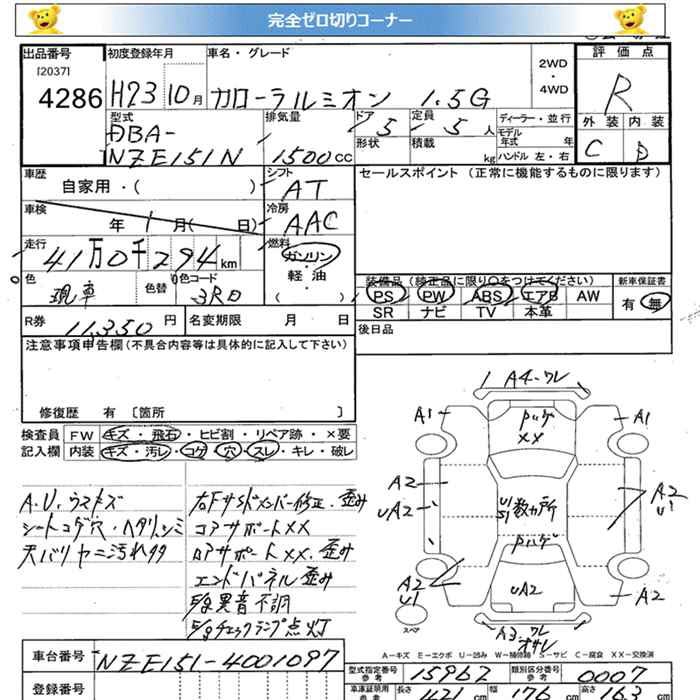 完全ゼロ切りコーナー
出品番号 初度登録年月 車名・グレード 2WD・4WD 評価点
[2037]
4286 H23 10月 カローラルミオン 1.5G R
型式 排気量 ドア 定員 ディーラー・並行 外装 内装
DBA- 5 5人 モデル年式 年 C D
NZE151N 1500cc 形状 積載 kg ハンドル 左・右
車歴 シフト セールスポイント (正常に機能するものに限ります)
自家用・( ) AT
車検 冷房
年 月( 日) AAC
走行 燃料
41万0千294km ガソリン・軽油
色 色替 色コード ( )
現車 3R0
装備品 (純正品に限り○をつけてください) 新車保証書
PS PW ABS エアB AW 有 無
SR ナビ TV 本革
R券 11,350円 名変期限 月 日 後日品
注意事項申告欄(不具合内容等は具体的に記入して下さい)
修復歴 有 〔箇所 〕
検査員 FW キズ・飛石・ヒビ割・リペア跡・×要
記入欄 内装 キズ・汚レ・コゲ・穴・スレ・キレ・破レ
A.U.ウスキズ
シートコゲ穴・ヘタリ.シミ
天バリヤニ汚れタタ
右Fサイドメンバー修正.歪み
コアサポートXX
ロアサポートXX.歪み
エンドパネル歪み
E/g異音不調
E/gチェックランプ点灯
A4.ワレ
A1 Pハゲ A1
XX
A2
UA2 U1 S1 数ヵ所 A2 U1
Pハゲ
A2 U1 UA2 A2
スペア
A3.ワレ
オサレ
A－キズ E－エクボ U－凹み W－補修跡 S－サビ C－腐食 XX－交換済
車台番号 NZE151-4001097
登録番号
型式指定番号 参考 15962 類別区分番号 参考 0007
車庫証明用 参考 長さ 421 cm 幅 176 cm 高さ 163 cm